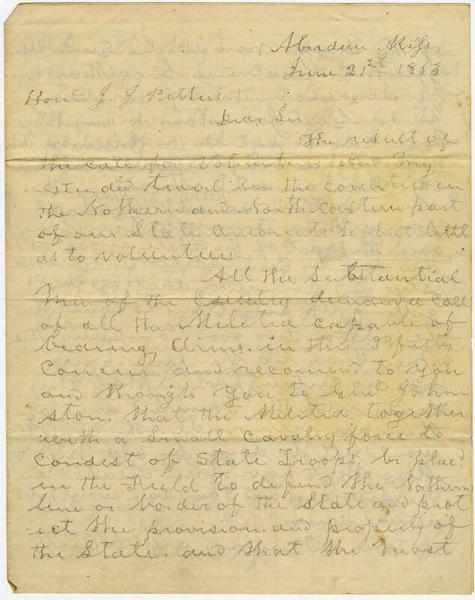 Aberdeen Miss
June 21st 1863
Hond J. J. Pettus
Dear Sir
The result of
the call for Volunteers and My
extended travel over the counties in
the Nothern and North eastern part
of our State amounts to but little
as to volunteers
All the Substantial
Men of the Country demand a call
of all the Militia capable of
bearing Arms. in this I fully
Concur and recomend to You
and through You to Genl John-
ston. that the Militia together
with a small cavalry force to
Consist of State Troops be placed
in the Field to defend the Nothern
line or border of the State and prot
ect the provision and property of
the State. and that the most